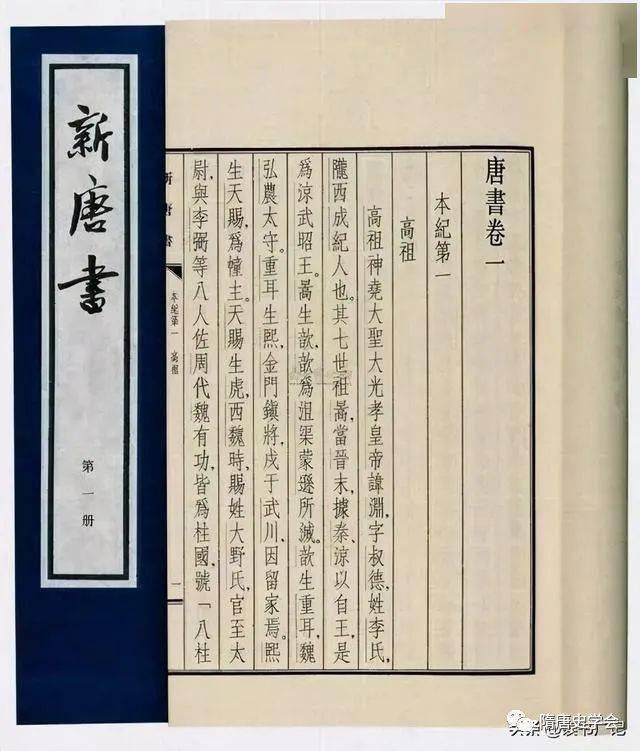 新唐書
第一册
唐書卷一
本紀第一
高祖
高祖神堯大聖大光孝皇帝諱淵,字叔德,姓李氏,
隴西成紀人也。其七世祖暠,當晉末,據秦、涼以自王,是
爲涼武昭王。暠生歆,歆爲沮渠蒙遜所滅。歆生重耳,魏
弘農太守。重耳生熙,金門鎭將,戍于武川,因留家焉。熙
生天賜,爲幢主。天賜生虎,西魏時,賜姓大野氏,官至太
尉,與李弼等八人佐周代魏有功,皆爲柱國,號「八柱
新唐書
本紀第一 高祖
一
隋唐史学会